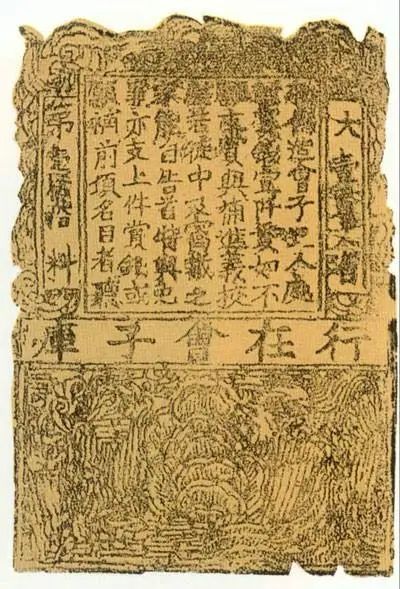 大壹貫文省
偽造會子犯人處
斬賞錢壹阡貫如不
願支賞與補進義校
尉若徒中及窩藏之
家能自告首特與免
罪亦支上件賞錢或
願補前項名目者聽
第料
行在會子庫